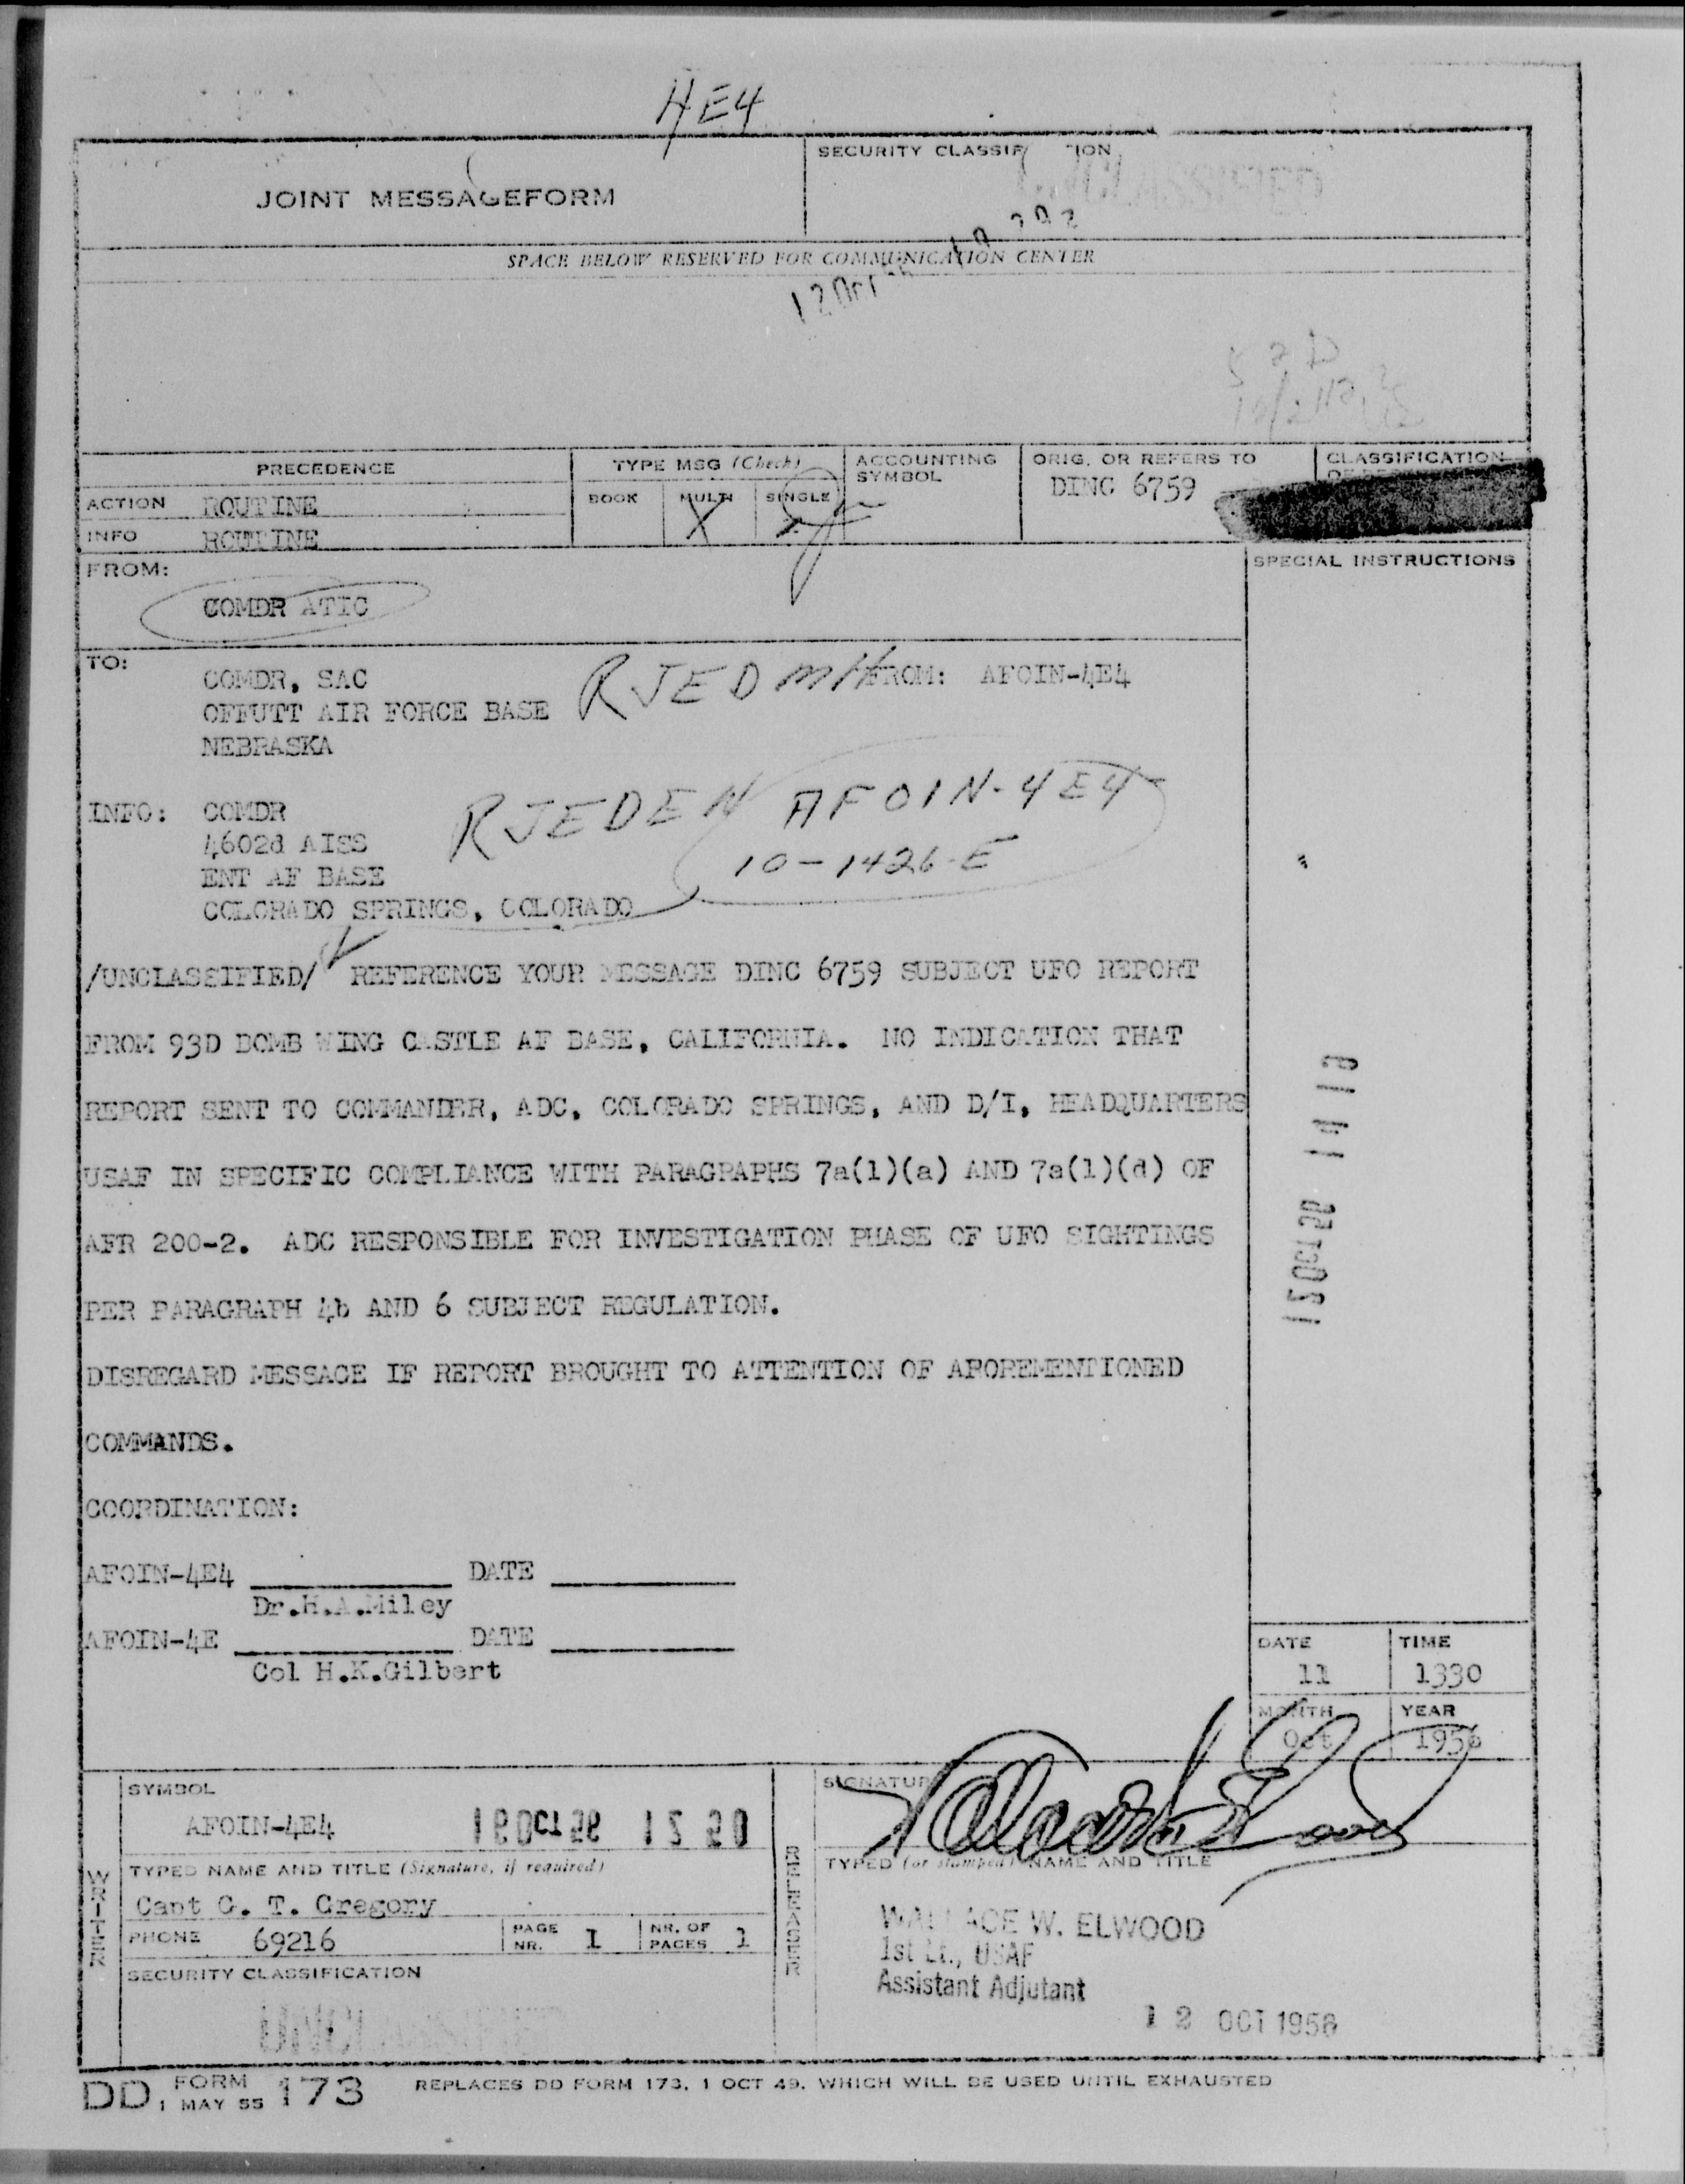 4E4
JOINT MESSAGEFORM
SECURITY CLASSIF TION
UNCLASSIFIED
SPACE BELOW RESERVED FOR COMMUNICATION CENTER
PRECEDENCE
TYPE MSG (Check)
ACCOUNTING SYMBOL
ORIG. OR REFERS TO
CLASSIFICATION
ACTION ROUTINE
BOOK MULTI SINGLE
X
DINC 6759
INFO ROUTINE
FROM:
SPECIAL INSTRUCTIONS
COMDR ATIC
TO:
COMDR, SAC RJEDMH FROM: AFOIN-4E4
OFFUTT AIR FORCE BASE
NEBRASKA
INFO: COMDR RJEDEN AFOIN-4E4
4602d AISS 10-1426-E
ENT AF BASE
COLORADO SPRINGS, COLORADO
/UNCLASSIFIED/ REFERENCE YOUR MESSAGE DINC 6759 SUBJECT UFO REPORT
FROM 93D BOMB WING CASTLE AF BASE, CALIFORNIA. NO INDICATION THAT
REPORT SENT TO COMMANDER, ADC, COLORADO SPRINGS, AND D/I, HEADQUARTERS
USAF IN SPECIFIC COMPLIANCE WITH PARAGRAPHS 7a(1)(a) AND 7a(1)(d) OF
AFR 200-2. ADC RESPONSIBLE FOR INVESTIGATION PHASE OF UFO SIGHTINGS
PER PARAGRAPH 4b AND 6 SUBJECT REGULATION.
DISREGARD MESSAGE IF REPORT BROUGHT TO ATTENTION OF AFOREMENTIONED
COMMANDS.
COORDINATION:
AFOIN-4E4 DATE
Dr.H.A.Miley
AFOIN-4E DATE
Col H.K.Gilbert
DATE TIME
11 1330
MONTH YEAR
Oct 1956
SYMBOL
AFOIN-4E4
SIGNATURE
Wallace W Elwood
WRITER
RELEASER
TYPED NAME AND TITLE (Signature, if required)
Capt G. T. Gregory
PHONE 69216
PAGE NR. 1
NR. OF PAGES 1
SECURITY CLASSIFICATION
UNCLASSIFIED
TYPED (or stamped) NAME AND TITLE
WALLACE W. ELWOOD
1st Lt., USAF
Assistant Adjutant
12 OCT 1956
DD FORM 1 MAY 55 173 REPLACES DD FORM 173, 1 OCT 49, WHICH WILL BE USED UNTIL EXHAUSTED